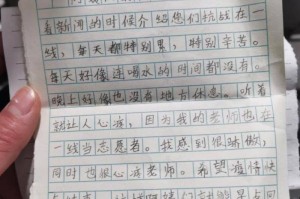 看新闻的时候介绍您们抗战在一
线，每天都特别累，特别辛苦。
每天好像连喝水的时间都没有。
晚上好像也没有地方休息。听着
就让人心疼，因为我的老师也在
一线当志愿者。我感到很骄傲，
同时也很心疼老师。希望疫情快